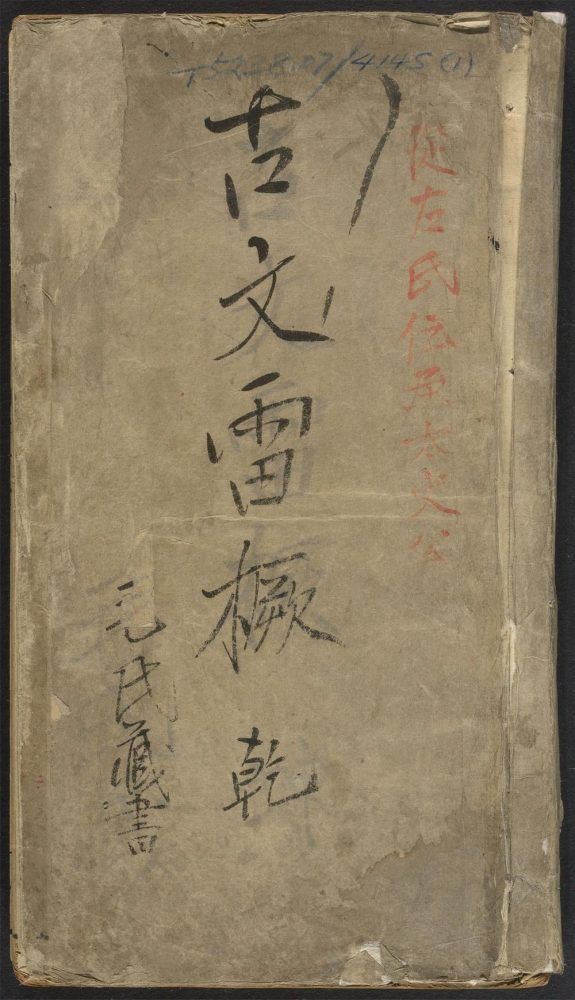 T5238.07/4145 (1)
從左氏傳至太史公
古文雷橛 乾
毛氏藏書